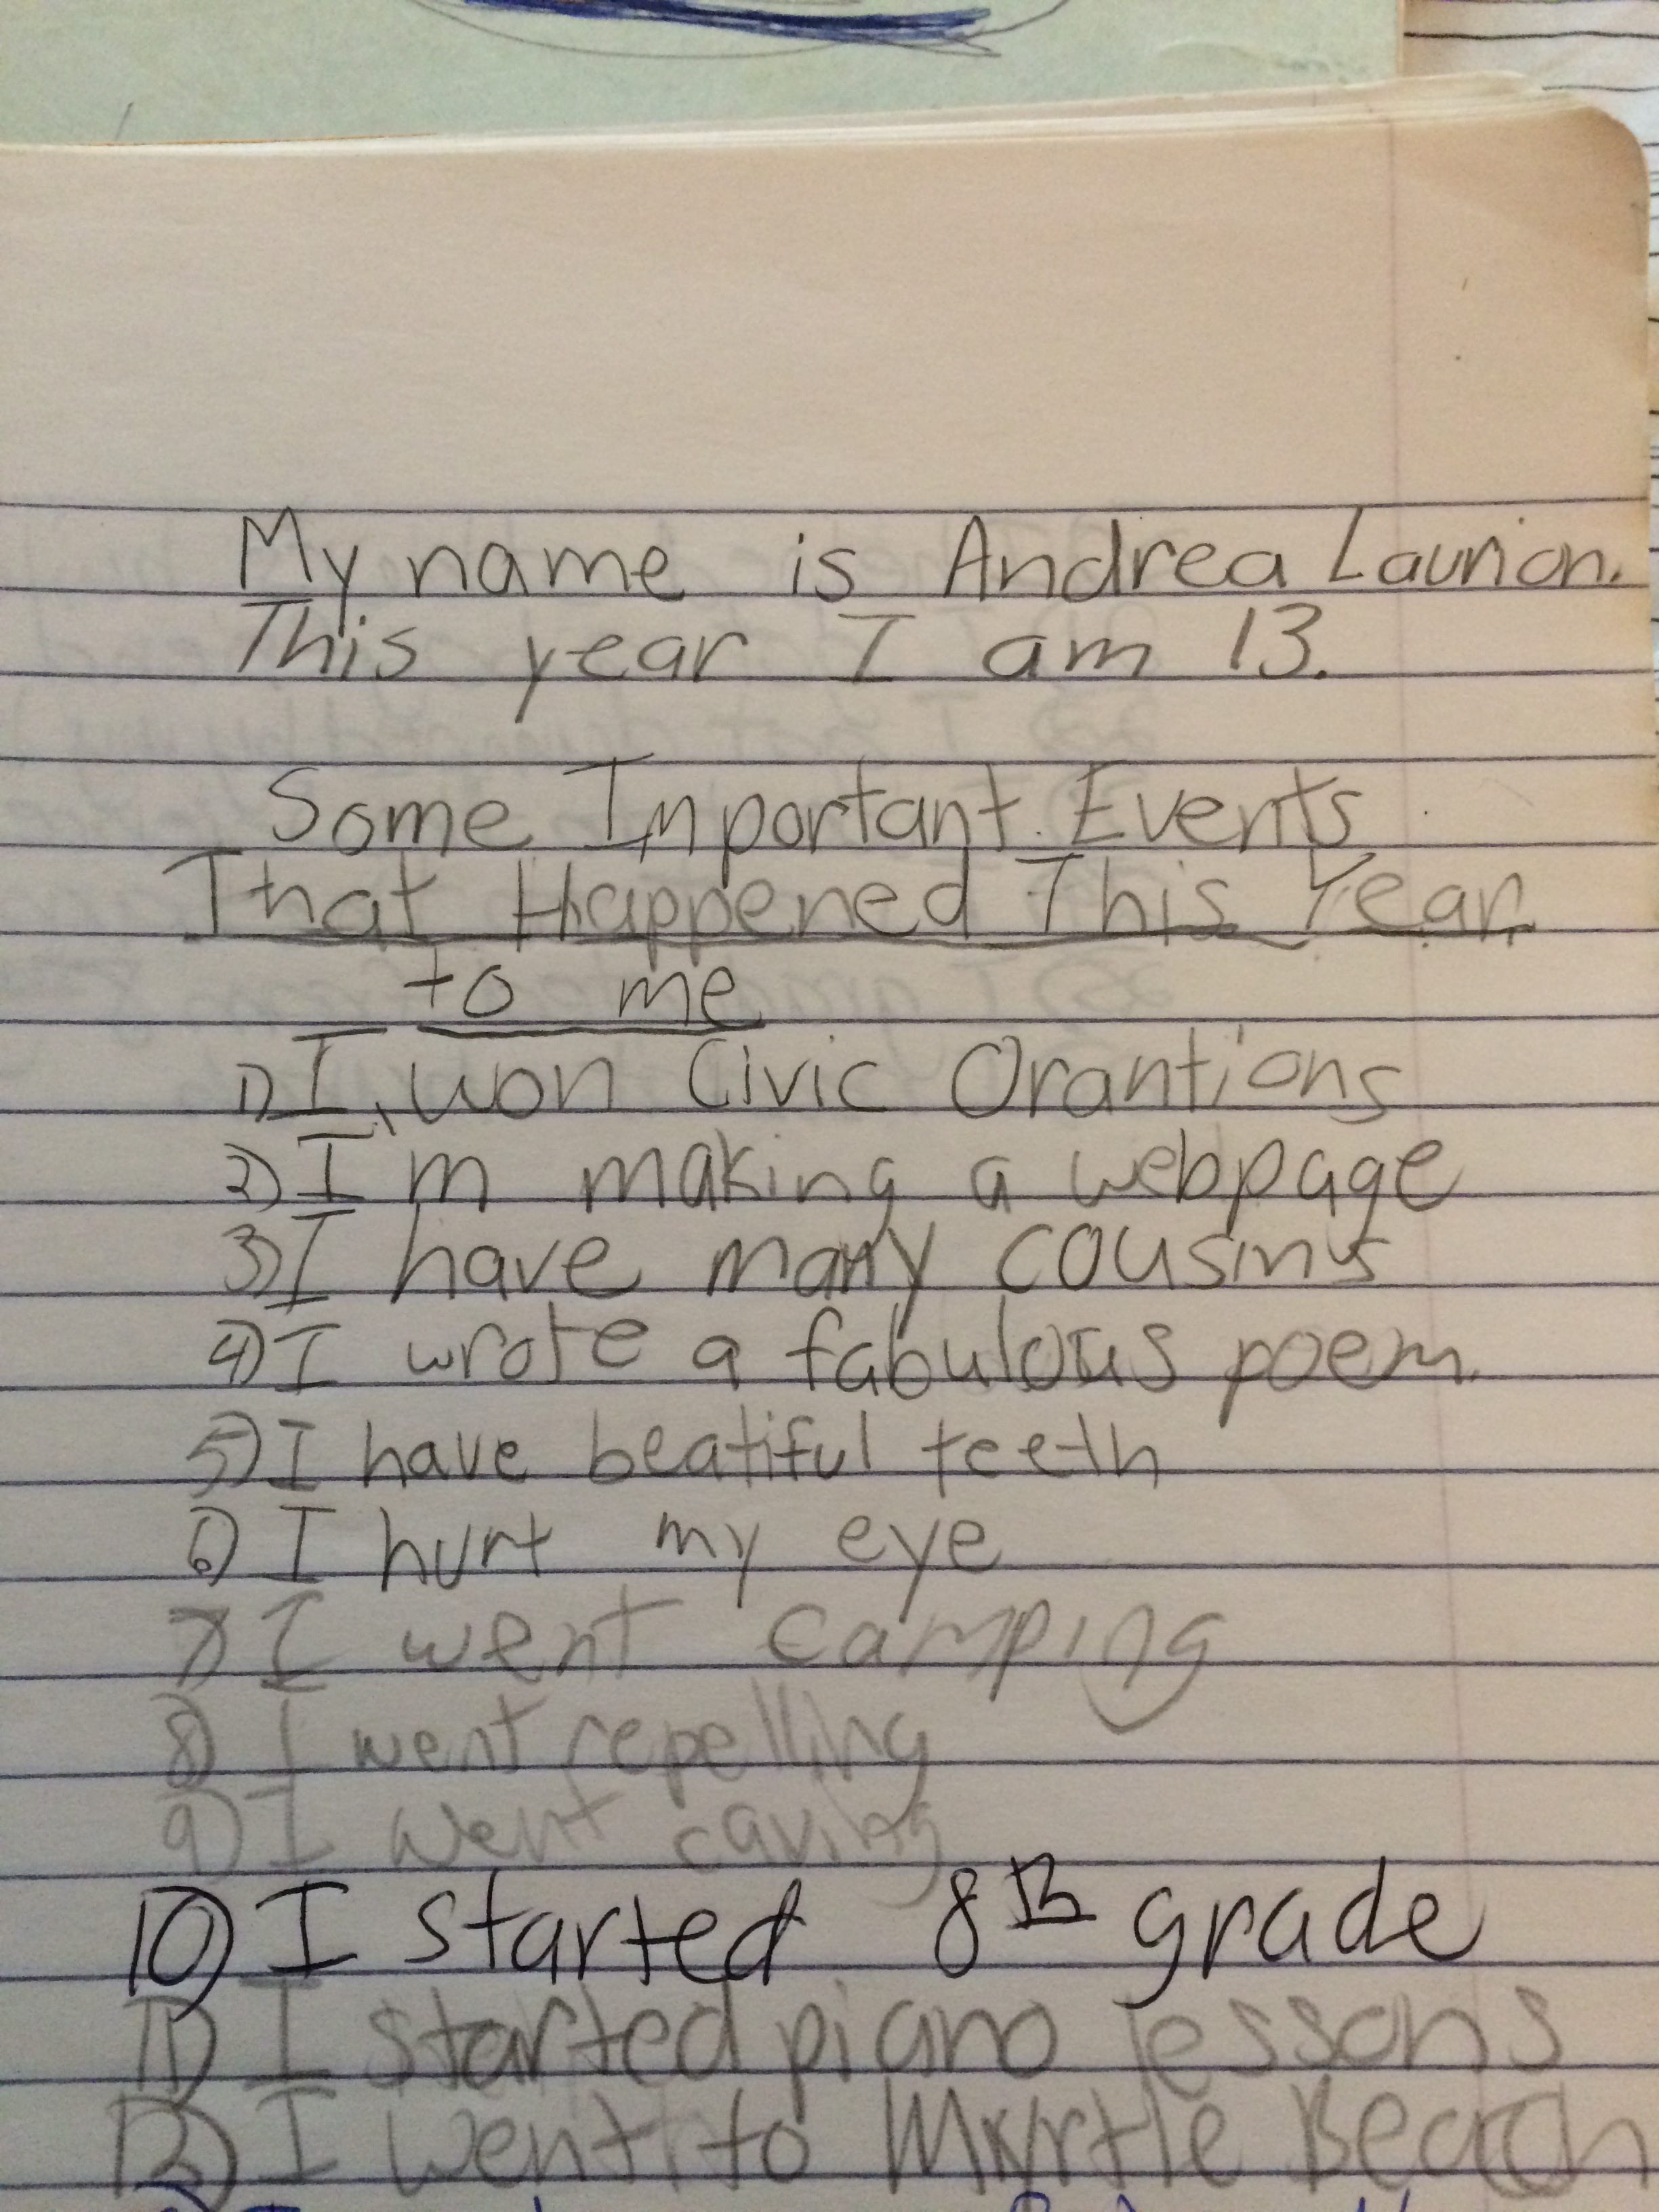 My name is Andrea Laurion.
This year I am 13.
Some Important Events
That Happened This Year
to me
1) I won Civic Orantions
2) I m making a webpage
3) I have many cousins
4) I wrote a fabulous poem.
5) I have beatiful teeth
6) I hurt my eye
7) I went camping
8) I went repelling
9) I went caving
10) I started 8th grade
11) I started piano lessons
12) I went to Myrtle Beach